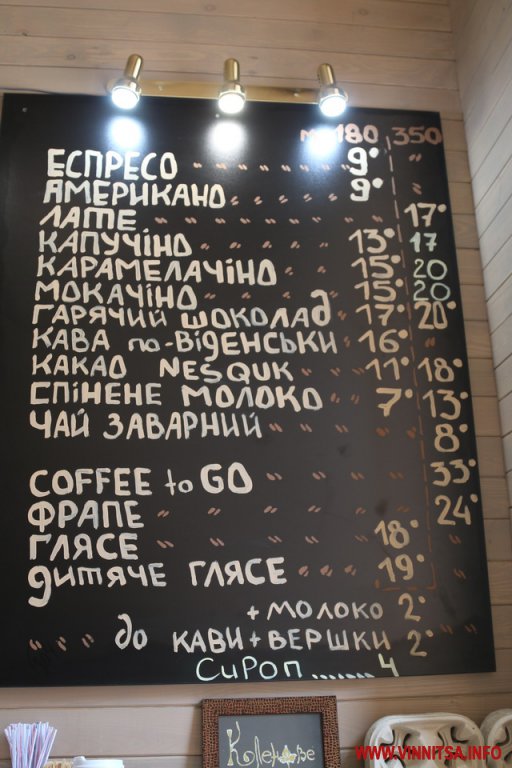 мл 180 350
ЕСПРЕСО 9°
АМЕРИКАНО 9°
ЛАТЕ 17°
КАПУЧІНО 13° 17
КАРАМЕЛАЧІНО 15° 20
МОКАЧІНО 15° 20
ГАРЯЧИЙ ШОКОЛАД 17° 20°
КАВА по-ВІДЕНСЬКИ 16°
КАКАО NESQUK 11° 18°
СПІНЕНЕ МОЛОКО 7° 13°
ЧАЙ ЗАВАРНИЙ 8°
COFFEE to GO 33°
ФРАПЕ 24°
ГЛЯСЕ 18°
дитяче ГЛЯСЕ 19°
+ МОЛОКО 2°
до КАВИ + ВЕРШКИ 2°
Сироп ....... 4
WWW.VINNITSA.INFO